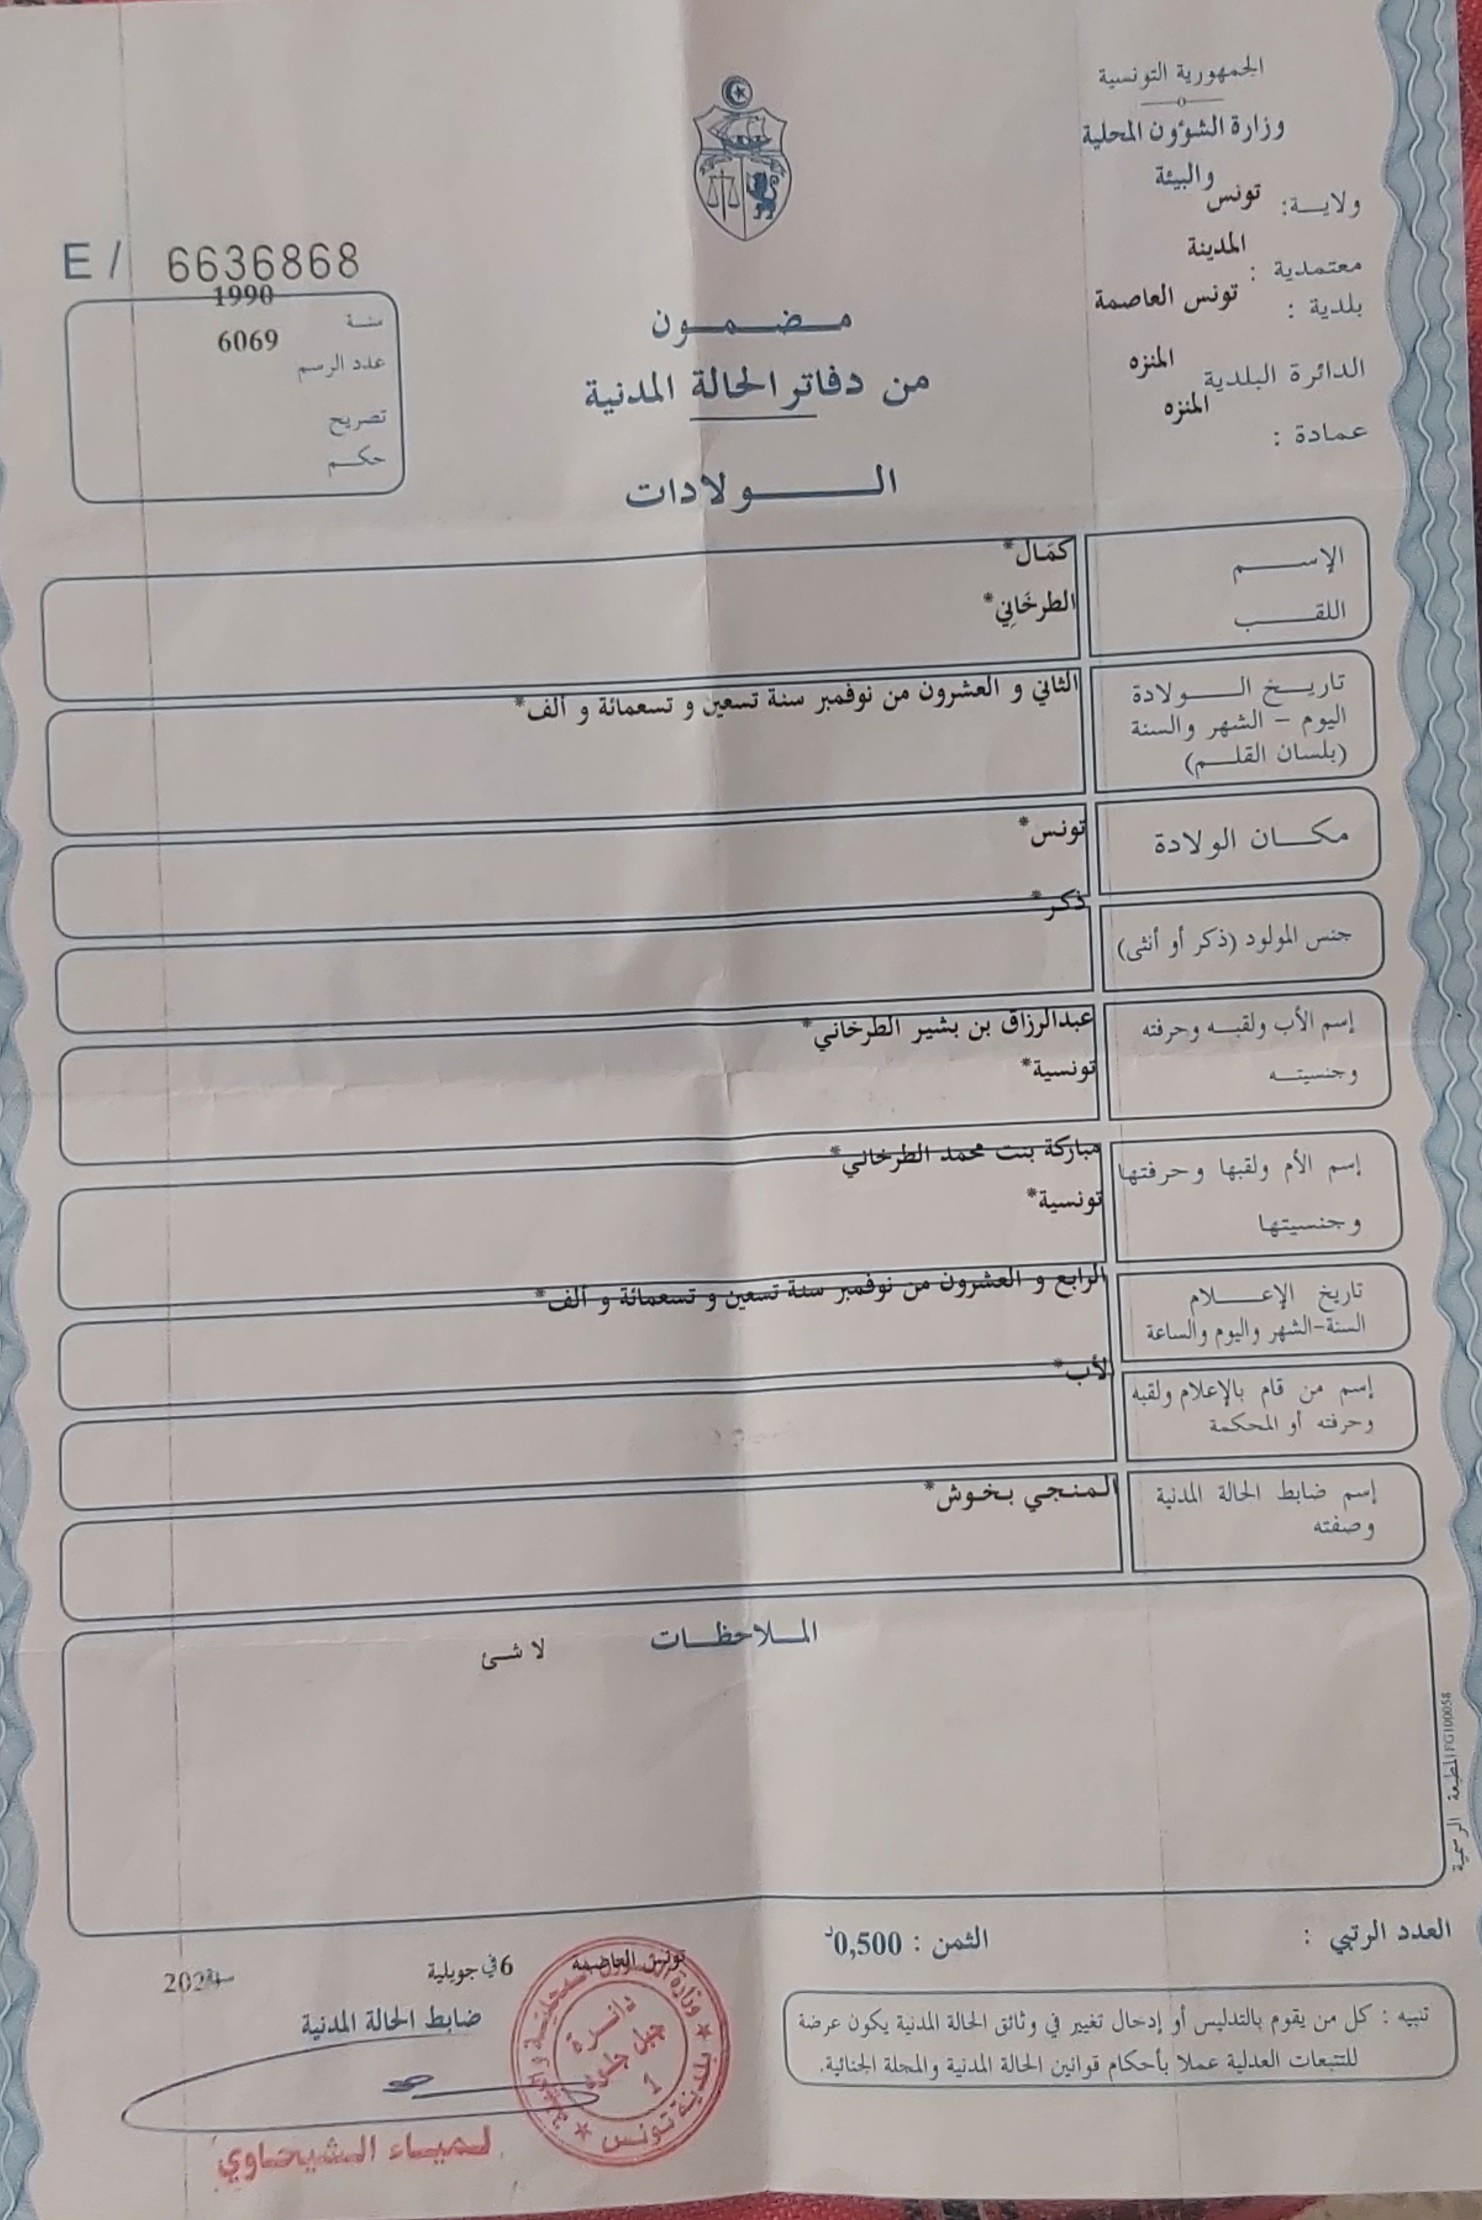 الجمهورية التونسية
وزارة الشؤون المحلية
والبيئة
ولاية: تونس
معتمدية : المدينة
بلدية : تونس العاصمة
الدائرة البلدية المنزه
عمادة : المنزه
E / 6636868
سنة 1990
عدد الرسم 6069
تصريح
حكم
مضمون
من دفاتر الحالة المدنية
الولادات
الإسم كمَال*
اللقب الطرخَانِي*
تاريخ الولادة الثاني و العشرون من نوفمبر سنة تسعين و تسعمائة و ألف*
اليوم - الشهر والسنة
(بلسان القلم)
مكان الولادة تونس*
جنس المولود (ذكر أو أنثى) ذكر*
إسم الأب ولقبه وحرفته عبدالرزاق بن بشير الطرخاني*
وجنسيته تونسية*
إسم الأم ولقبها وحرفتها مباركة بنت محمد الطرخاني*
وجنسيتها تونسية*
تاريخ الإعلام الرابع و العشرون من نوفمبر سنة تسعين و تسعمائة و ألف*
السنة-الشهر واليوم والساعة
إسم من قام بالإعلام ولقبه الأب*
وحرفته أو المحكمة
إسم ضابط الحالة المدنية المنجي بخوش*
وصفته
الملاحظات
لا شئ
المطبعة الرسمية FG100058
العدد الرتبي :
الثمن : 0,500د
تنبيه : كل من يقوم بالتدليس أو إدخال تغيير في وثائق الحالة المدنية يكون عرضة
للتتبعات العدلية عملا بأحكام قوانين الحالة المدنية والمجلة الجنائية.
تونس العاصمة في 6 جويلية سنة
ضابط الحالة المدنية
دائرة
جبل جلود
1
بلدية تونس
لمياء الشيحاوي